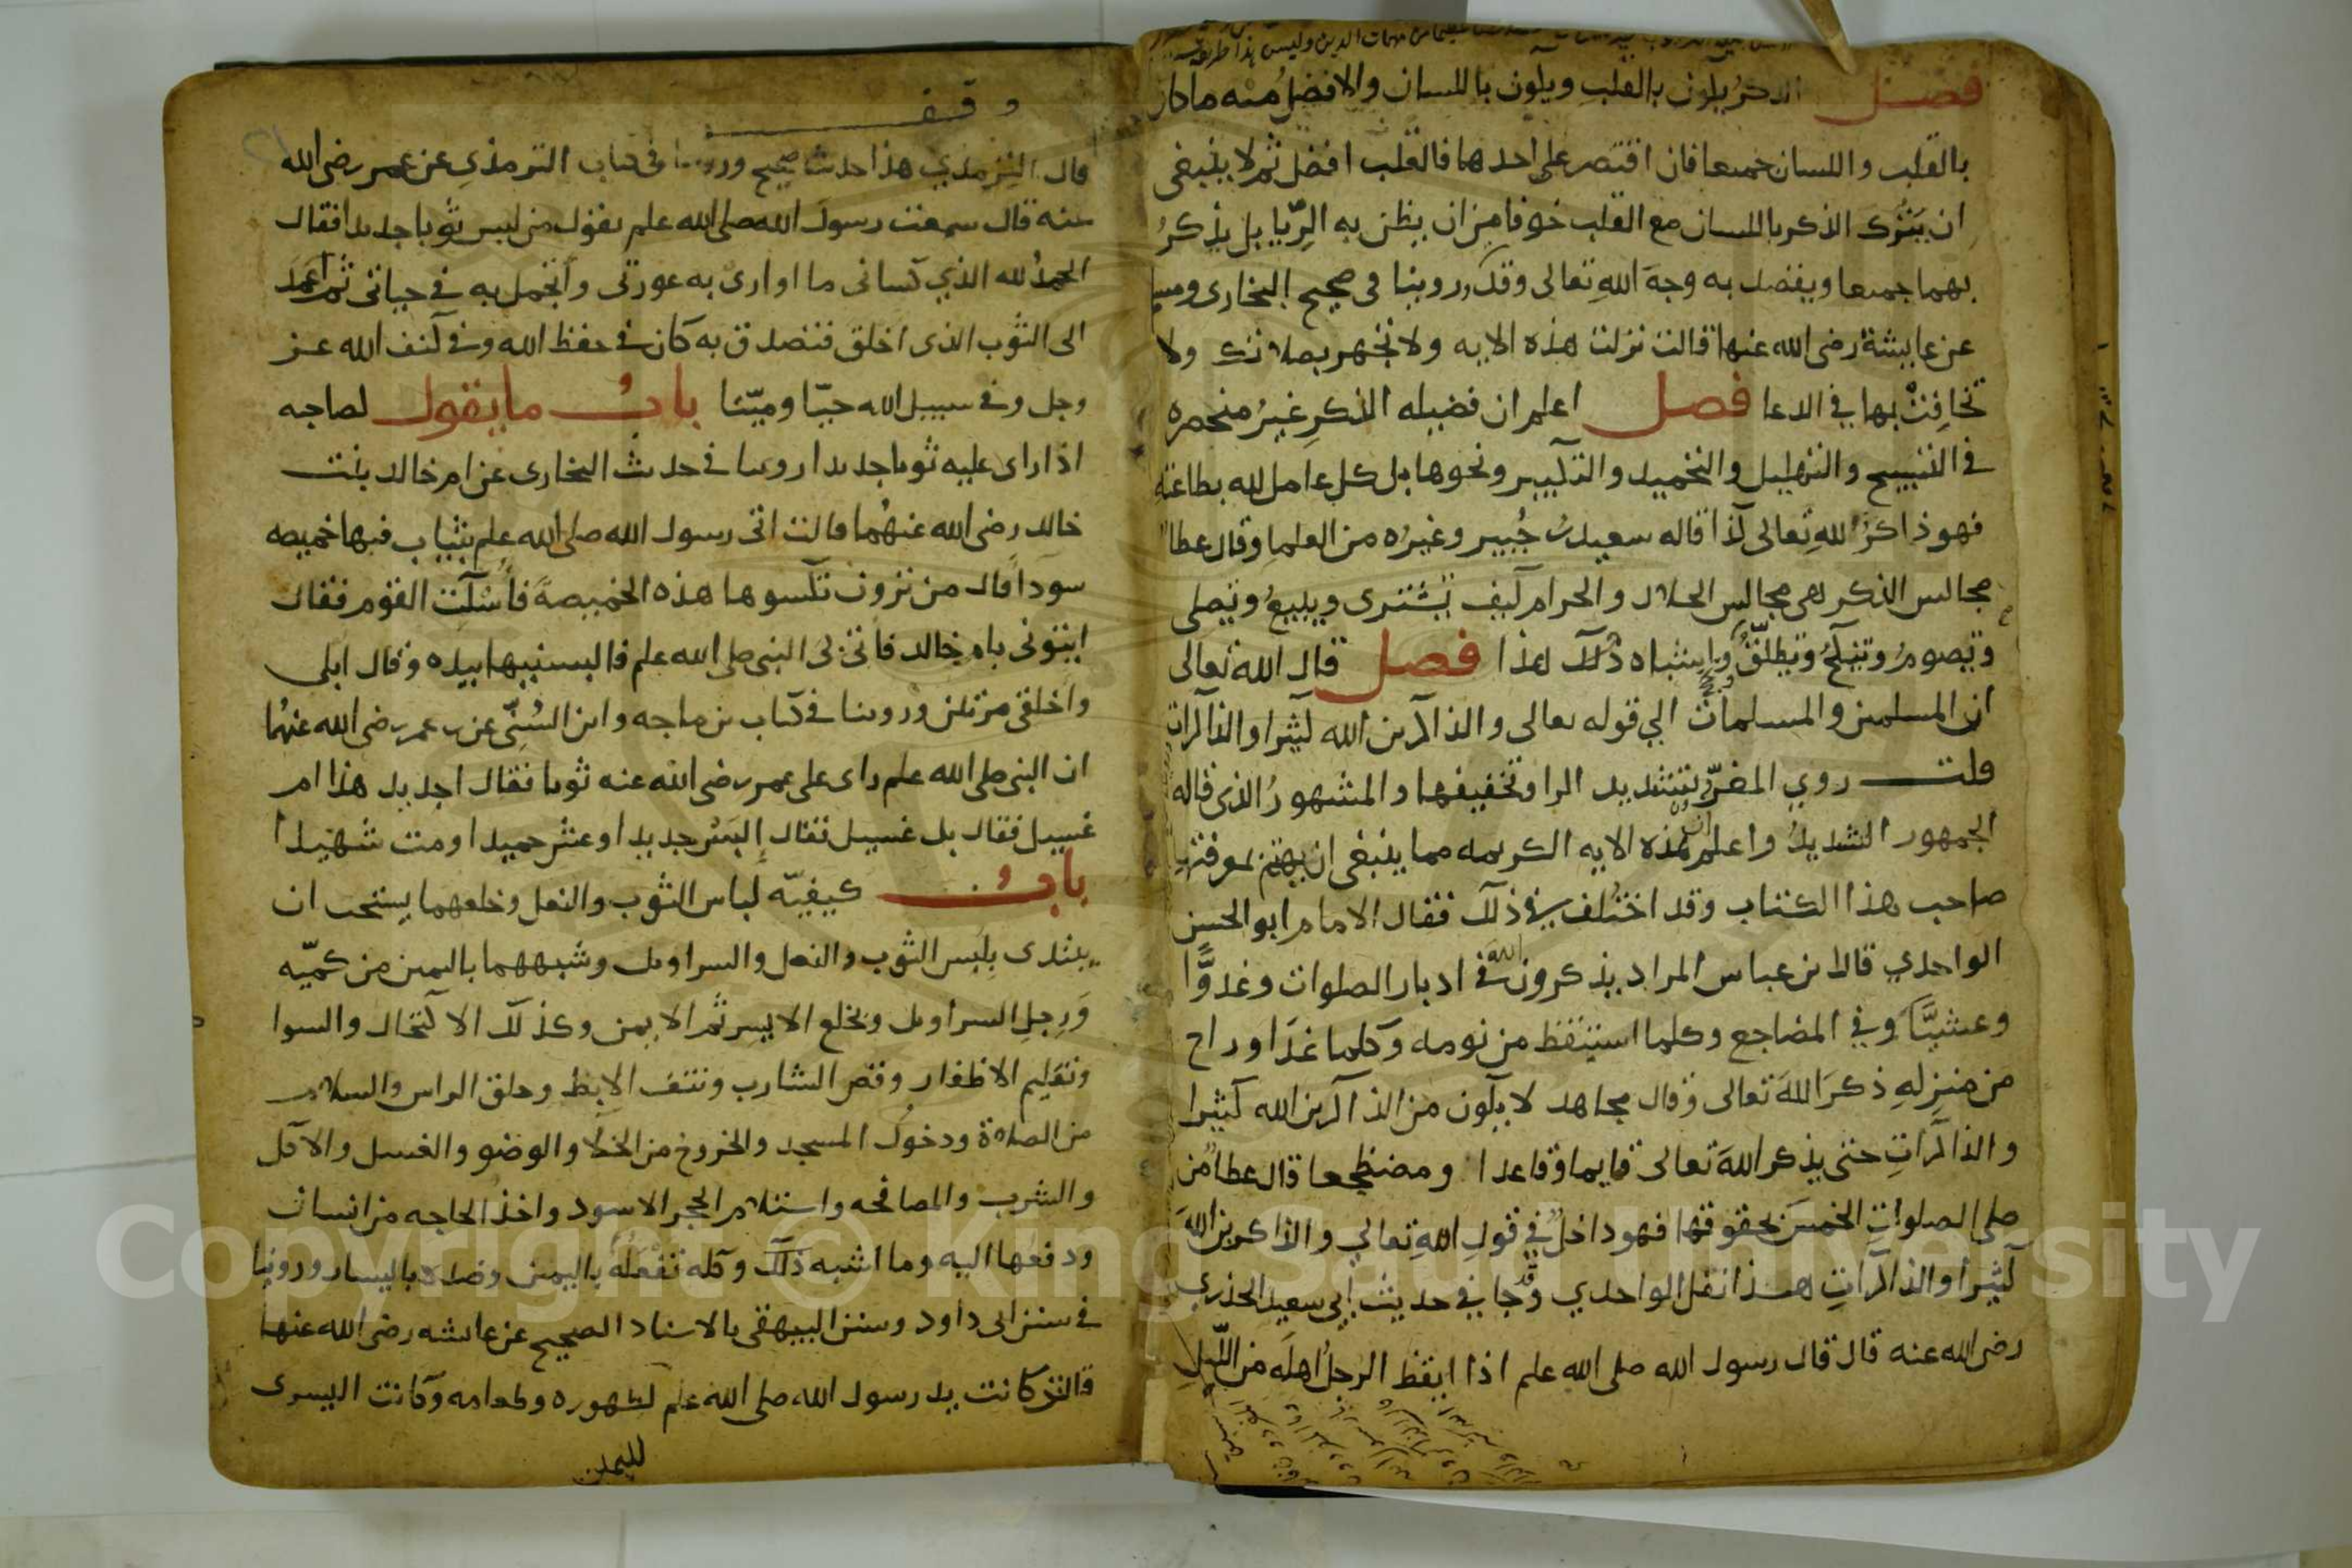 فصل الذكر يكون بالقلب ويكون باللسان والافضل منه ما كان
بالقلب واللسان جميعا فان اقتصر على احدهما فالقلب افضل ثم لا ينبغي
ان يترك الذكر باللسان مع القلب خوفا من ان يظن به الريا بل يذكر
بهما جميعا ويقصد به وجه الله تعالى وقد روينا في صحيح البخارى ومسلم
عن عايشة رضى الله عنها قالت نزلت هذه الايه ولا تجهر بصلاتك ولا
تخافت بها في الدعا فصل اعلم ان فضيله الذكر غير منحصره
في التسبيح والتهليل والتحميد والتكبير ونحوها بل كل عامل لله بطاعة
فهو ذاكر لله تعالى كذا قاله سعيد بن جبير وغيره من العلما وقال عطا
مجالس الذكر هى مجالس الحلال والحرام كيف تشترى وتبيع وتصلى
وتصوم وتنكح وتطلق وتحج واشباه ذلك هذا فصل قال الله تعالى
ان المسلمين والمسلمات الي قوله تعالى والذاكرين الله كثيرا والذاكرات
قلت روي المفرد بتشديد الرا وتخفيفها والمشهور الذى قاله
الجمهور التشديد واعلم ان هذه الايه الكريمه مما ينبغى ان يهتم بمعرفتها
صاحب هذا الكتاب وقد اختلف في ذلك فقال الامام ابو الحسن
الواحدي قال ابن عباس المراد يذكرون الله في ادبار الصلوات وغدوا
وعشيا وفي المضاجع وكلما استيقظ من نومه وكلما غدا وراح
من منزله ذكر الله تعالى وقال مجاهد لا يكون من الذاكرين الله كثيرا
والذاكرات حتى يذكر الله تعالى قايما وقاعدا ومضطجعا قال عطا من
صلى الصلوات الخمس بحقوقها فهو داخل في قول الله تعالي والذاكرين الله
كثيرا والذاكرات هذا نقل الواحدي وقد جا في حديث أبي سعيد الخدري
رضى الله عنه قال قال رسول الله صلى الله علم اذا ايقظ الرجل اهله من الليل
وقف
قال الترمذي هذا حديث صحيح وروينا في كتاب الترمذي عن عمر رضى الله
عنه قال سمعت رسول الله صلى الله علم يقول من لبس ثوبا جديدا فقال
الحمد لله الذي كسانى ما اوارى به عورتى واتجمل به في حياتى ثم عمد
الى الثوب الذى اخلق فتصدق به كان في حفظ الله وفي كنف الله عز
وجل وفي سبيل الله حيا وميتا باب ما يقول لصاحبه
اذا راى عليه ثوبا جديدا روينا في حديث البخارى عن ام خالد بنت
خالد رضى الله عنهما قالت اتى رسول الله صلى الله علم بثياب فيها خميصه
سودا قال من ترون نكسوها هذه الخميصة فأسكت القوم فقال
ايتونى بام خالد فاتى بى النبى صلى الله علم فالبسنيها بيده وقال ابلى
واخلقى مرتين وروينا في كتاب بن ماجه وابن السنى عن بن عمر رضى الله عنهما
ان النبى صلى الله علم راى على عمر رضى الله عنه ثوبا فقال اجديد هذا ام
غسيل فقال بل غسيل فقال البس جديدا وعش حميدا ومت شهيدا
باب كيفية لباس الثوب والنعل وخلعهما يستحب ان
يبتدى بلبس الثوب والنعل والسراويل وشبههما باليمين من كميه
ورجل السراويل ويخلع الايسر ثم الايمن وكذلك الاكتحال والسوا
وتقليم الاظفار وقص الشارب ونتف الابط وحلق الراس والسلام
من الصلاة ودخول المسجد والخروج من الخلا والوضو والغسل والاكل
والشرب والمصافحه واستلام الحجر الاسود واخذ الحاجه من انسان
ودفعها اليه وما اشبه ذلك وكله تفعله باليمين وضده باليسار وروينا
في سنن ابى داود وسنن البيهقى بالاسناد الصحيح عن عائشه رضى الله عنها
قالت كانت يد رسول الله صلى الله علم لطهوره وطعامه وكانت اليسرى
Copyright © King Saud University